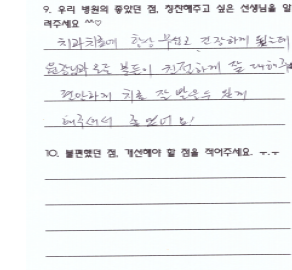 9. 우리 병원의 좋았던 점, 칭찬해주고 싶은 선생님을 알
려주세요 ^^♡
치과치료에 항상 무섭고 긴장하게 됐는데
원장님과 모든 분들이 친절하게 잘 대해주
편안하게 치료 잘 받을수 있게
해주셔서 좋았어요!
10. 불편했던 점, 개선해야 할 점을 적어주세요. ㅜ.ㅜ